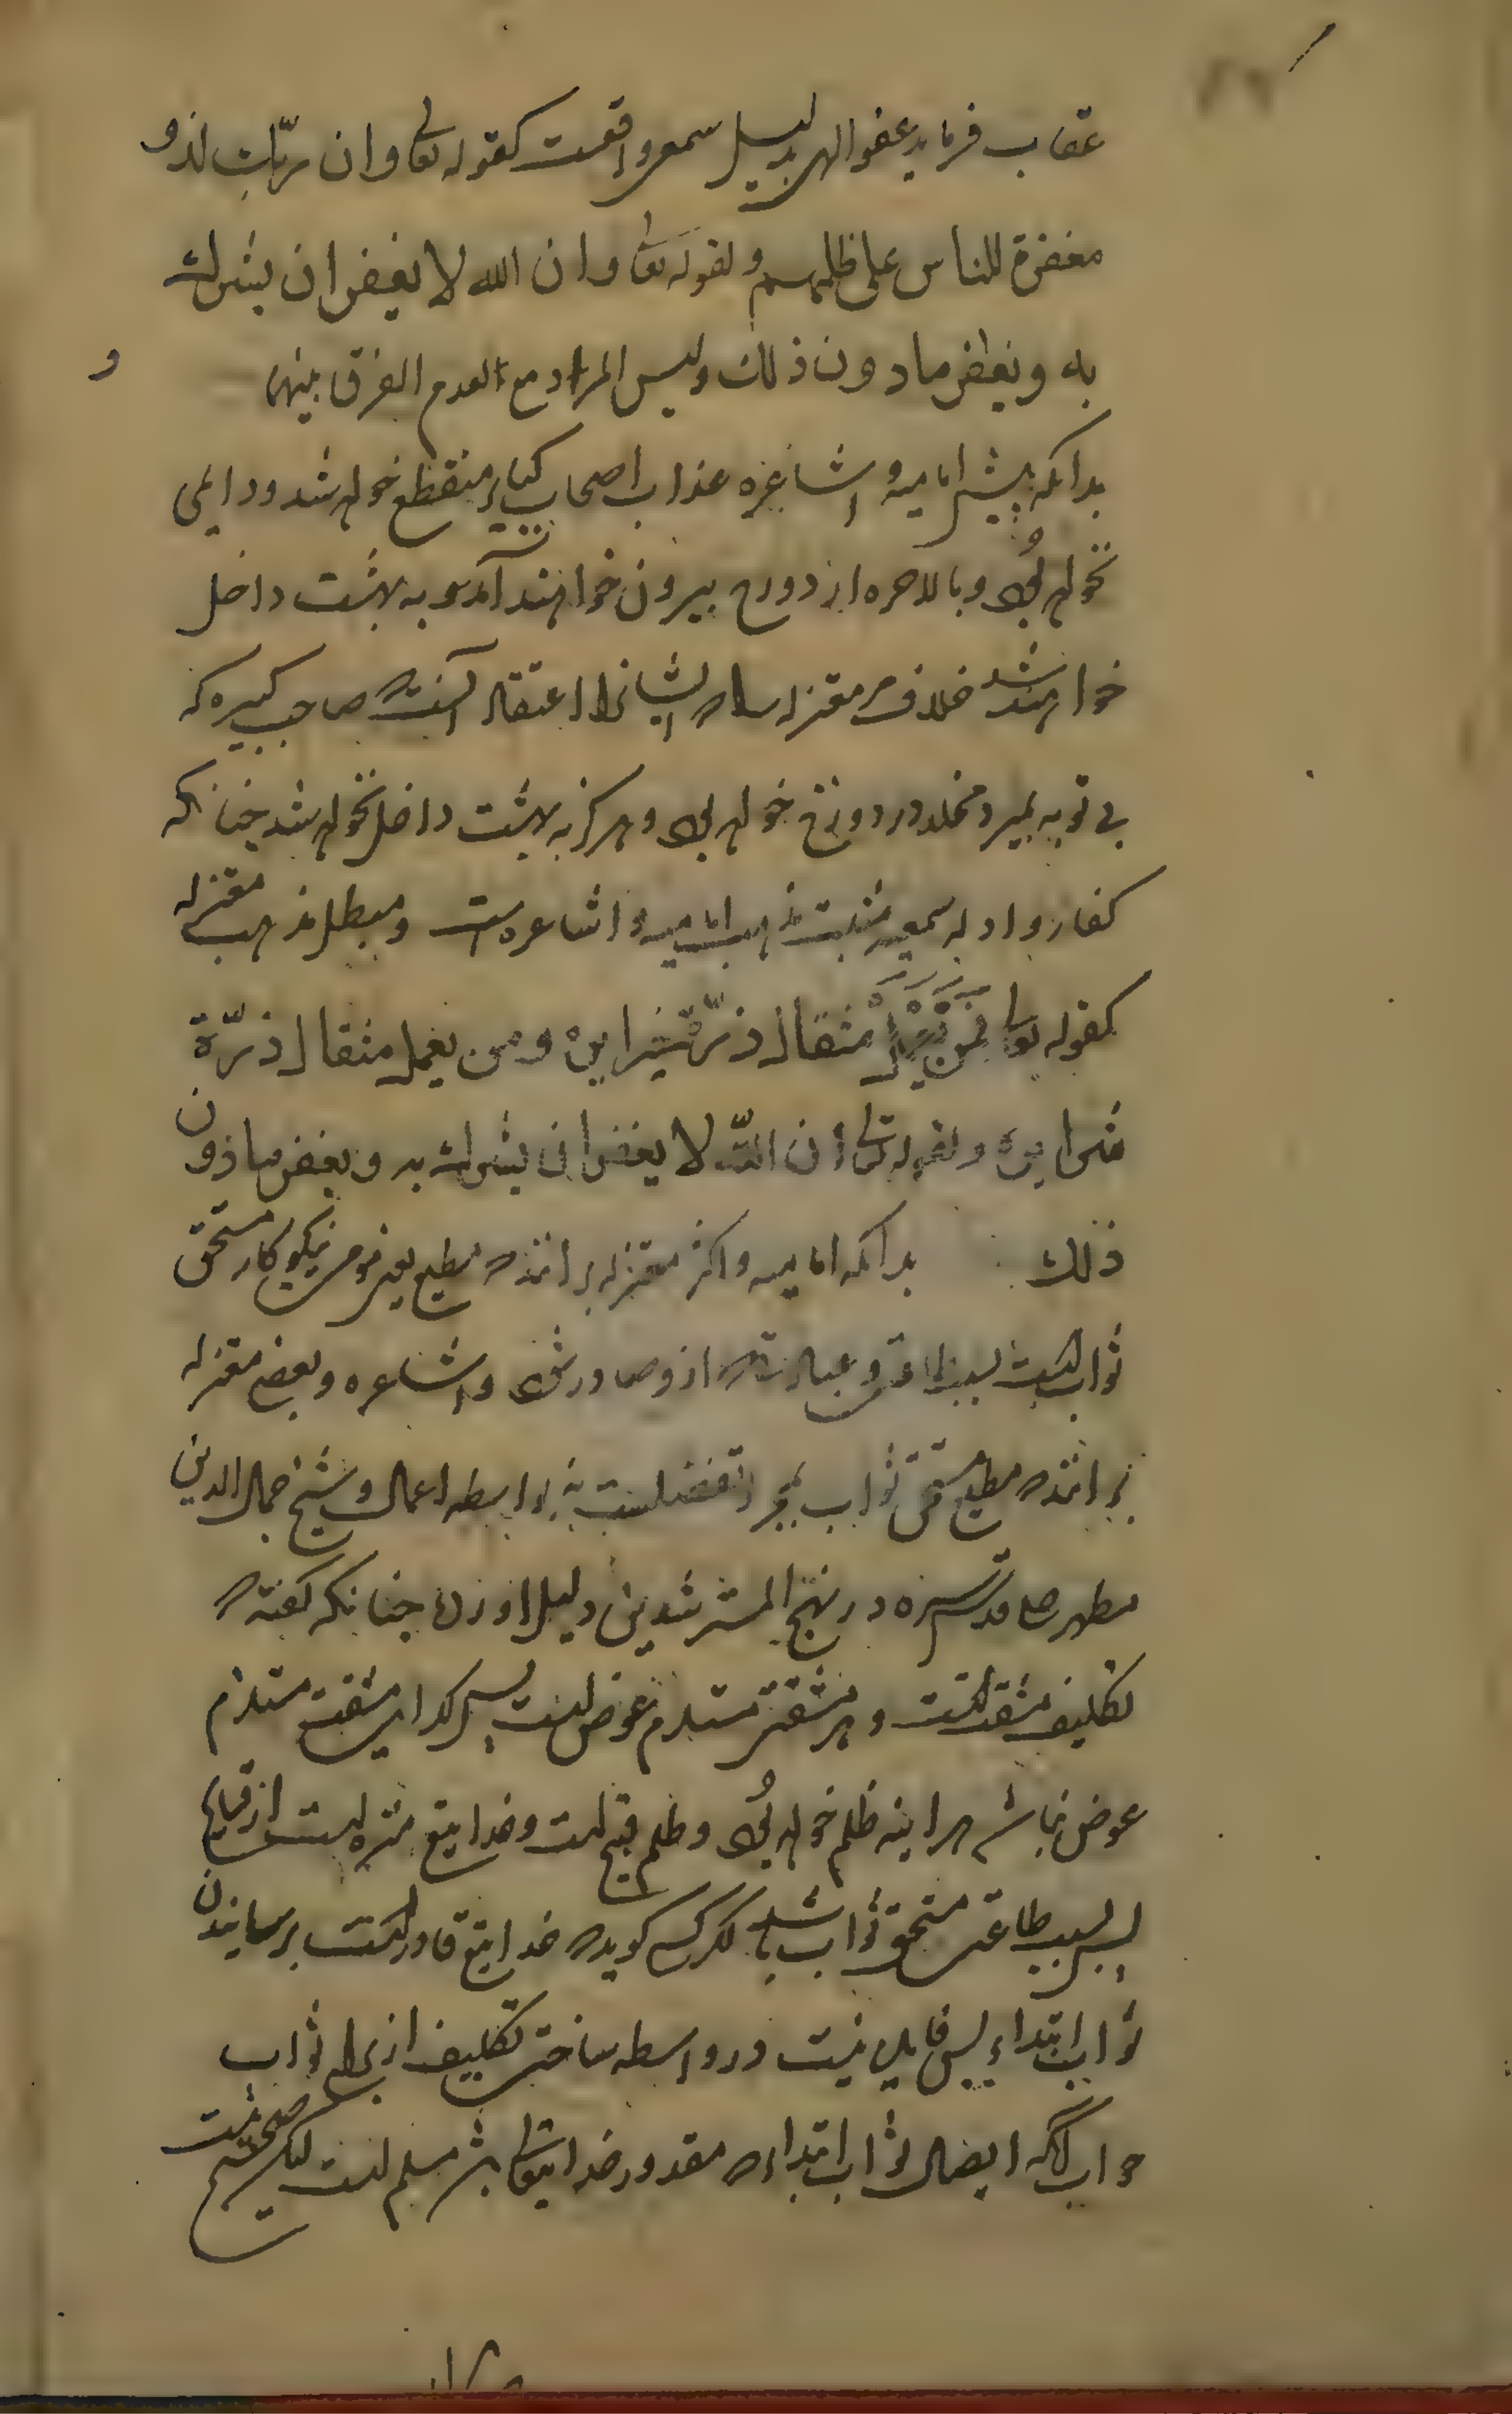 عقاب فرماید عفو الهی بدلیل سمعی واقعست کقوله تعالی وان ربک لذو
مغفرة للناس علی ظلمهم و لقوله تعالی وان الله لا یغفر ان یشرک
به و یغفر مادون ذلک ولیس المراد مع العدم الفرق بینهما
بدانکه پیش امامیه و اشاعره عذاب اصحاب کبایر منقطع خواهد شد و دایمی
نخواهد بود و بالاخره از دوزخ بیرون خواهند آمد و به بهشت داخل
خواهند شد خلاف معتزله که ایشانرا اعتقاد آنست که صاحب کبیره که
بی توبه بمیرد مخلد در دوزخ خواهد بود و هرکز به بهشت داخل نخواهد شد چنانکه
کفار و ادله سمعیه مثبت مذهب امامیه و اشاعره است و مبطل مذهب معتزله
کقوله تعالی فمن یعمل مثقال ذرّة خیرا یره و من یعمل مثقال ذرّة
شرا یره و لقوله تعالی ان اللّه لا یغفر ان یشرک به و یغفر ما دون
ذلک بدانکه امامیه و اکثر معتزله برانند که مطیع یعنی مؤمن نیکوکار مستحق
ثواب است بسبب طاعتی و عبادتی که ازو صادر شود و اشاعره و بعضی معتزله
برانند که مطیع مستحق ثواب بمجرد تفضل است نه بواسطه اعمال و شیخ جمال الدین
مطهر حلی قدس سره در نهج المسترشدین دلیل آورده چنانکه گفته که
تکلیف مشقت است و هر مشقتی مستلزم عوض است پس اکر این مشقت مستلزم
عوض نباشد هراینه ظلم خواهد بود و ظلم قبیح است و خدایتع منزه است از قبایح
پس بسبب طاعتی مستحق ثواب باشد اکر کسی کوید که خدایتع قادر است بر رسانیدن
ثواب ابتداء پس فایده نیست در واسطه ساختن تکلیف از برای ثواب
جواب آنکه ایصال ثواب ابتداء که مقدور خدایتعالی باشد مسلم است لیکن صحیح نیست